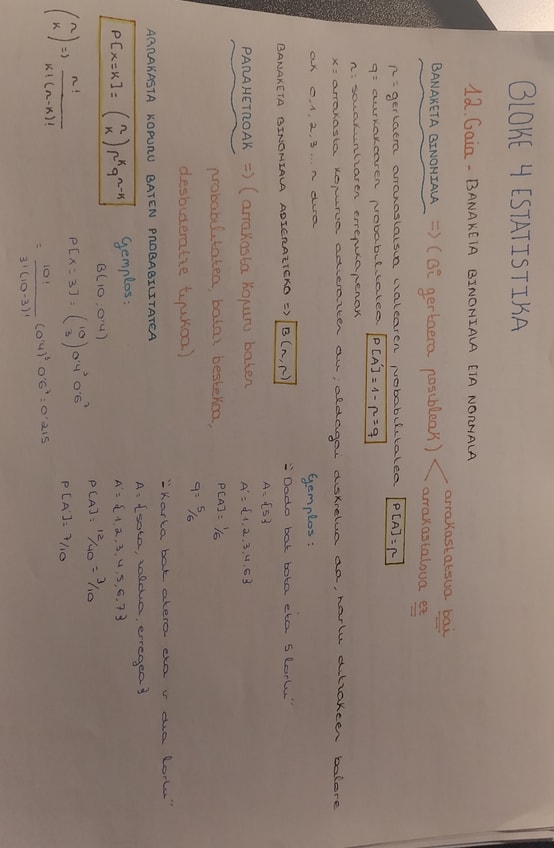 BLOKE 4 ESTATISTIKA
12. Gaia - BANAKETA BINOMIALA ETA NORMALA
BANAKETA BINOMIALA => (Bi gertaera posibleak) < arrakastatsua bai
arrakastatsua ez
p = gertaera arrakastatsua izatearen probabilitatea P[A]=p
q = aurkakoaren probabilitatea P[A']=1-p=q
n = saiakuntzaren errepikapenak
x = arrakasta kopurua adierazten du, aldagai diskretua da, hartu ditzakeen balore
ak 0, 1, 2, 3 ... n dira
BANAKETA BINOMIALA ADIERAZTEKO => B(n,p)
PARAMETROAK => (arrakasta kopuru baten
probabilitatea, batez bestekoa,
desbideratze tipikoa)
ARRAKASTA KOPURU BATEN PROBABILITATEA
P[x=k] = (n k) p^k q^n-k
(n k) => n! / k!(n-k)!
Gemplos:
B(10, 0'4)
P[x=3] = (10 3) 0'4³ 0'6⁷
= 10! / 3!(10-3)! (0'4)³ 0'6⁷ = 0'215
Gemplos:
- "Dado bat bota eta 5 lortu"
A = {5}
A' = {1, 2, 3, 4, 6}
P[A] = 1/6
q = 5/6
- "Karta bat atera eta dua lortu"
A = {sota, zaldia, erregea}
A' = {1, 2, 3, 4, 5, 6, 7}
P[A] = 12/40 = 3/10
P[A'] = 7/10